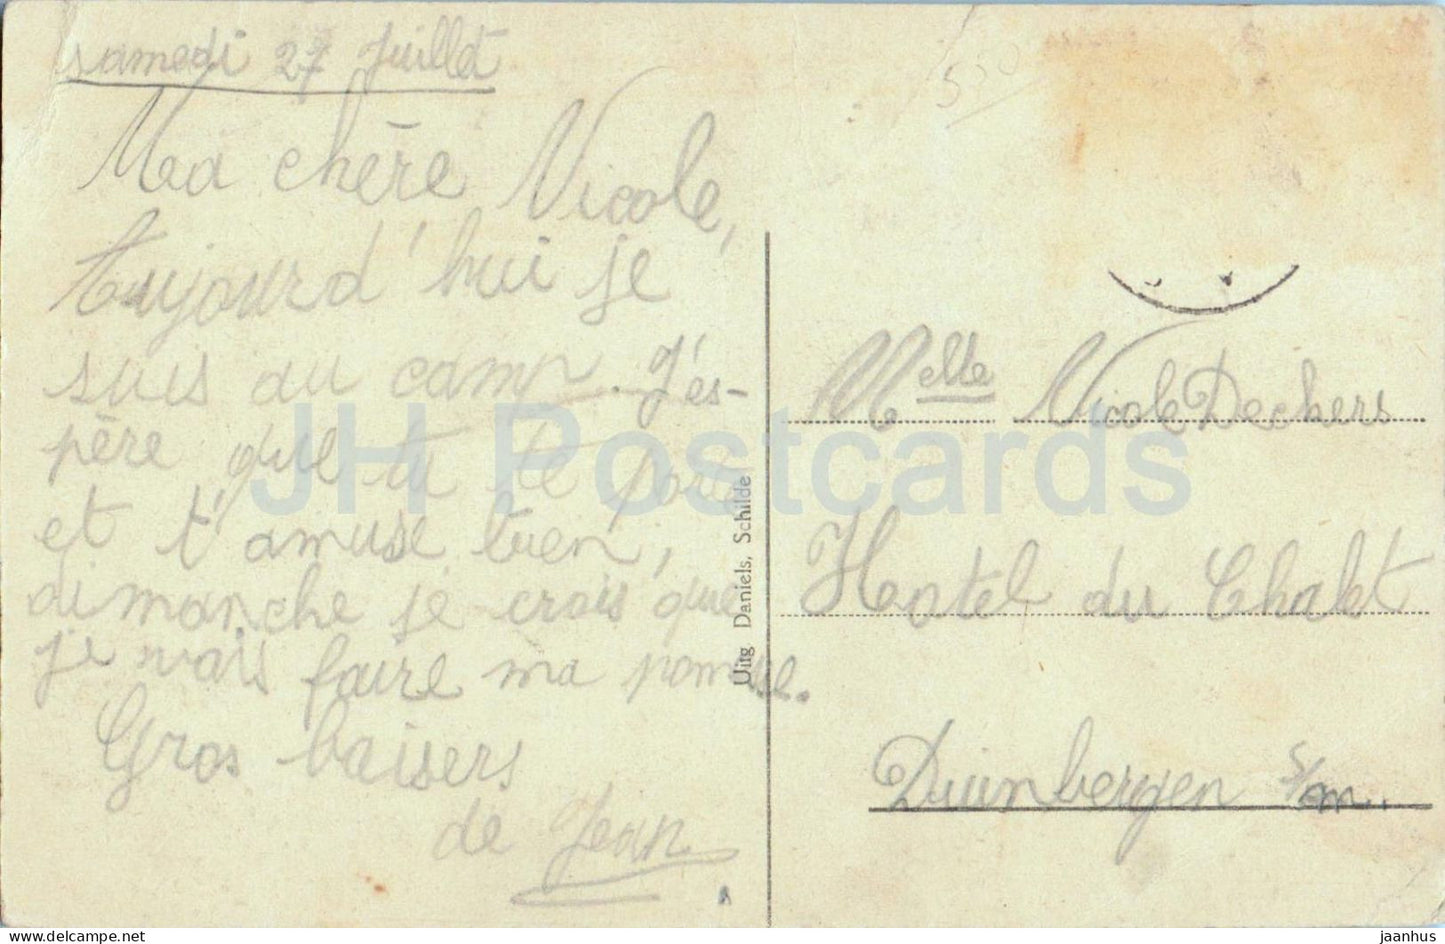 samedi 27 Juillet
Ma chère Nicole,
Aujourd'hui je
suis au camp. J'es-
père que tu te porte
et t'amuse bien,
dimanche je crois que
je vais faire ma promesse.
Gros baisers
de Jean
550
Uitg Daniels, Schilde
Melle Nicole Deckers
Hostel du Chalet
Duinbergen s/m.
JH Postcards
jaanhus